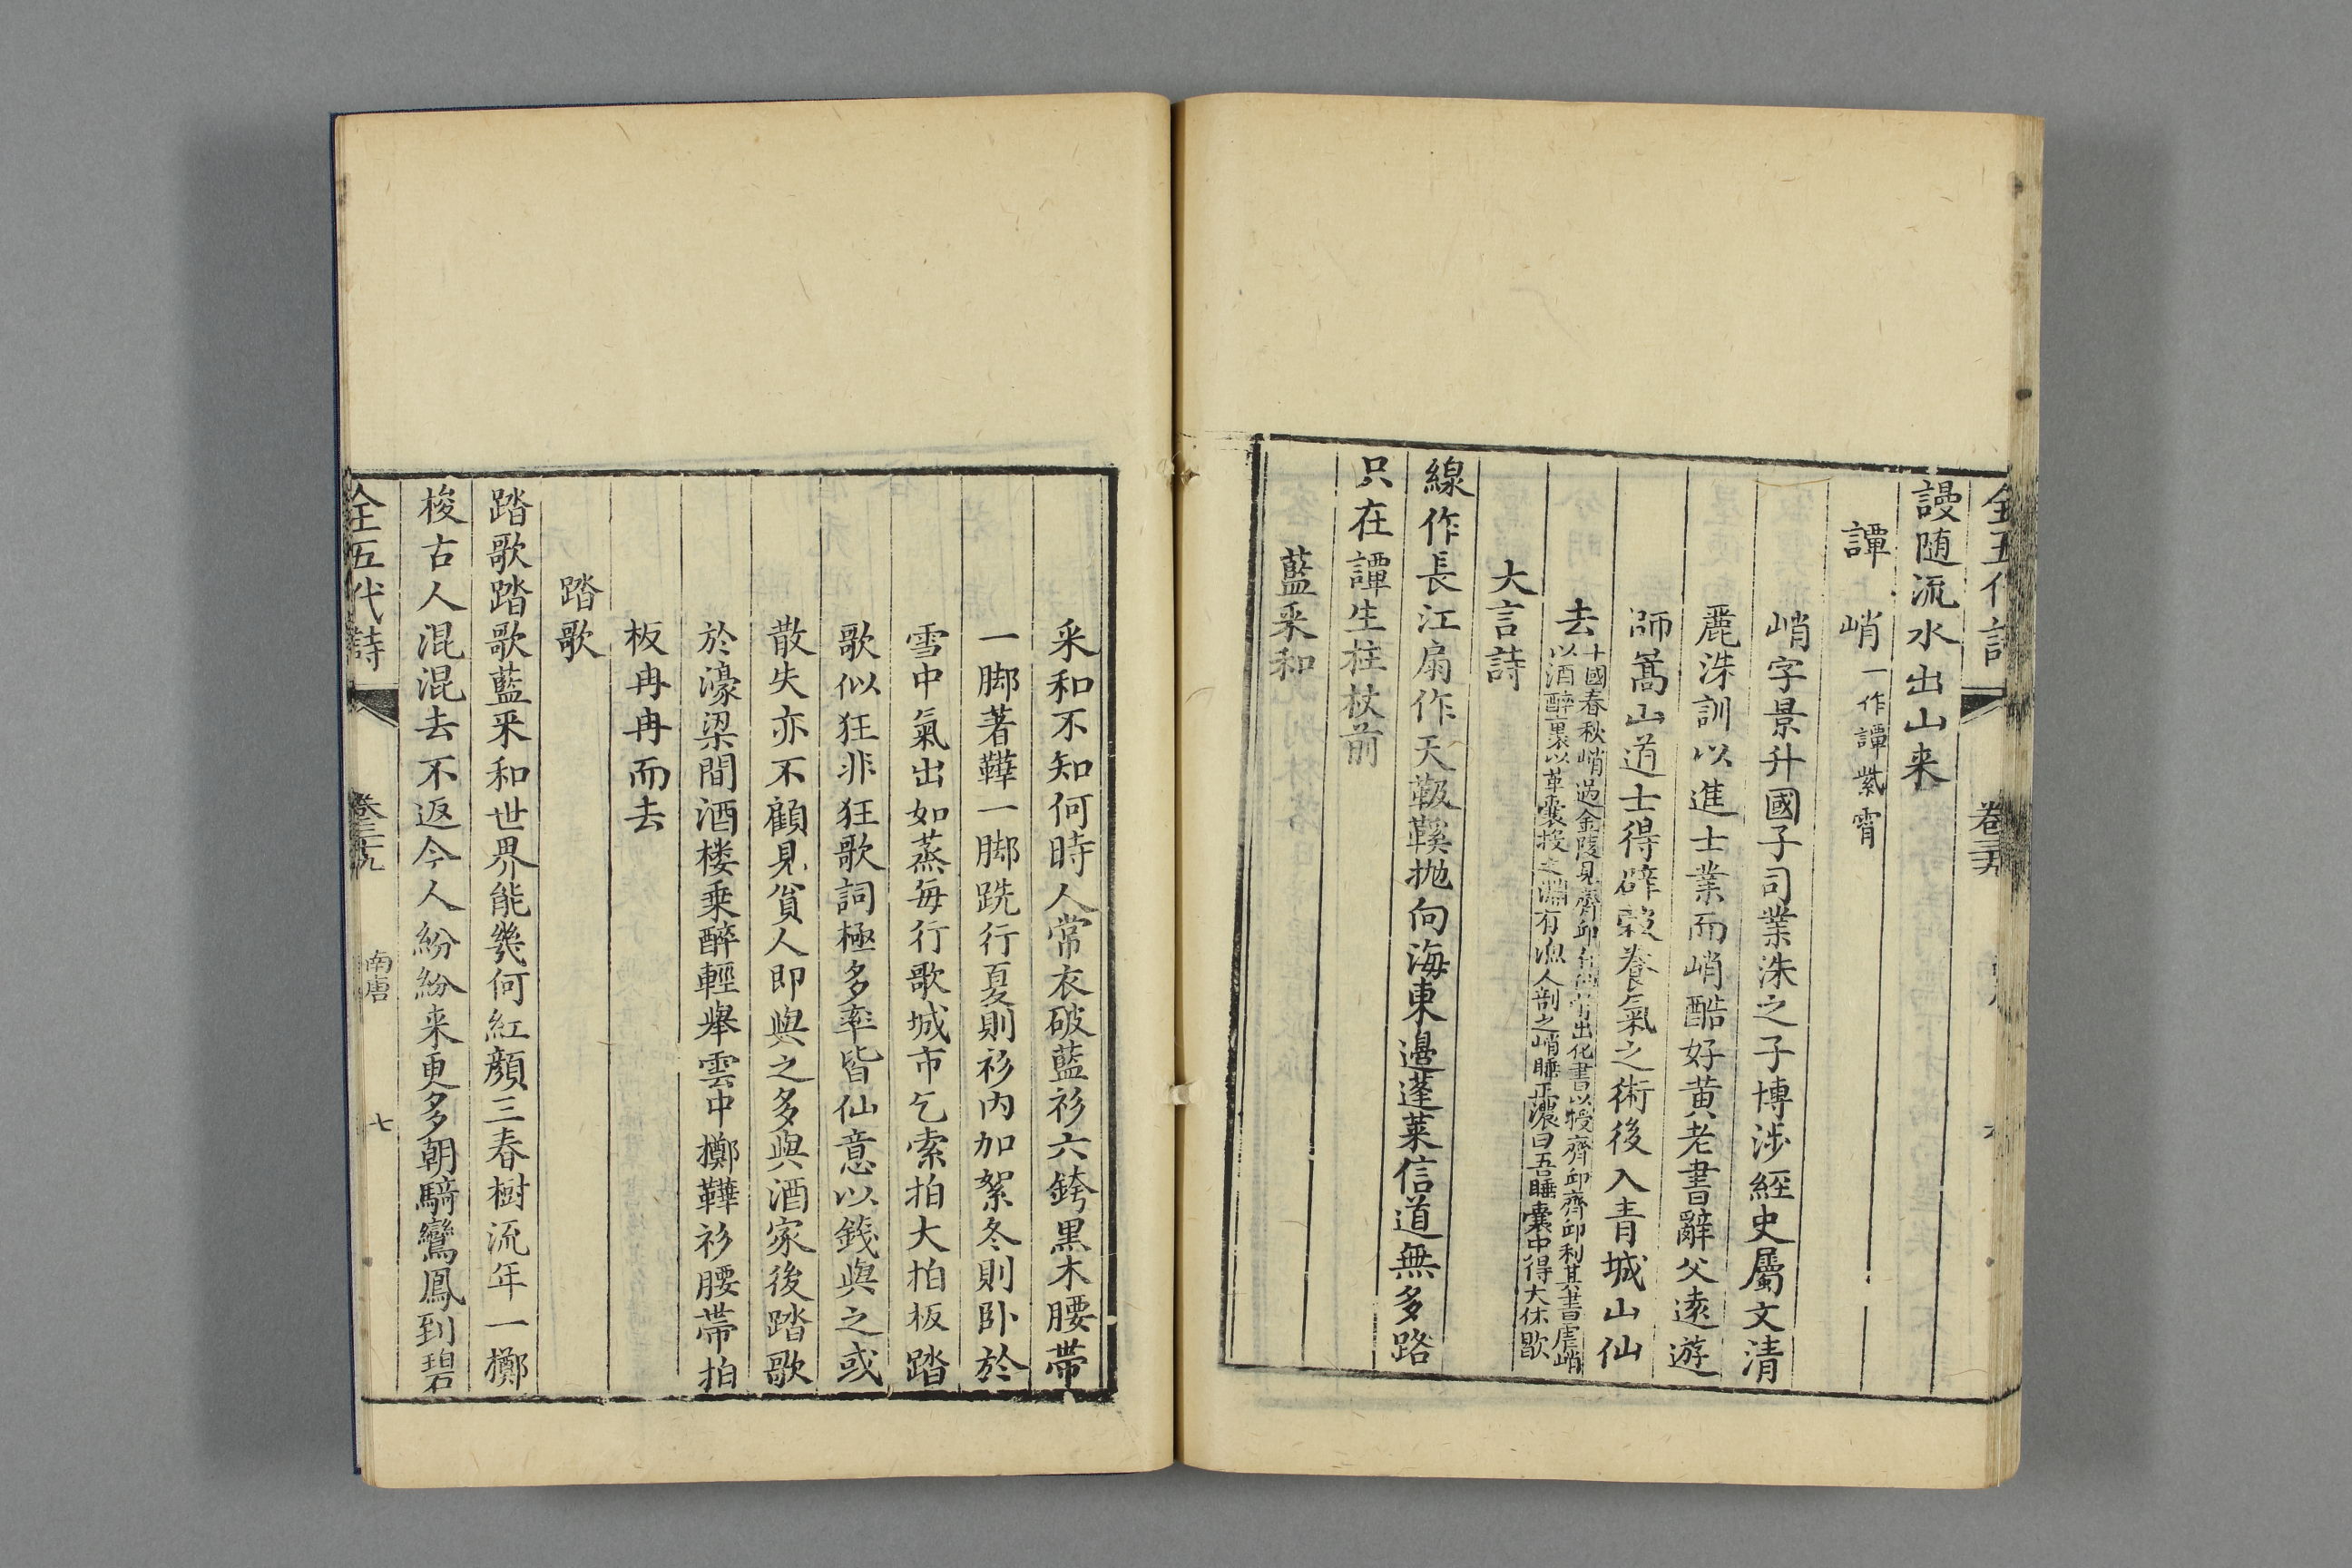 全五代詩
謾随流水出山来
譚峭一作譚紫霄
峭字景升國子司業洙之子博涉經史屬文清
麗洙訓以進士業而峭酷好黄老書辭父遠遊
師嵩山道士得辟穀養氣之術後入青城山仙
去
十國春秋峭過金陵見齊邱有仙骨出化書以授齊邱齊邱利其書虐峭
以酒醉裹以革囊投之淵有漁人剖之峭睡正濃曰吾睡囊中得大休歇
大言詩
線作長江扇作天靸鞵抛向海東邊蓬萊信道無多路
只在譚生柱杖前
藍采和
采和不知何時人常衣破藍衫六銙黒木腰帶
一脚著鞾一脚跣行夏則衫内加絮冬則卧於
雪中氣出如蒸每行歌城市乞索拍大拍板踏
歌似狂非狂歌詞極多率皆仙意以錢與之或
散失亦不顧見貧人即與之多與酒家後踏歌
於濠梁間酒楼乗醉輕舉雲中擲鞾衫腰帶拍
板冉冉而去
踏歌
踏歌踏歌藍采和世界能幾何紅顔三春樹流年一擲
梭古人混混去不返今人紛紛来更多朝騎鸞鳳到碧
全五代詩 卷三十九 南唐 七